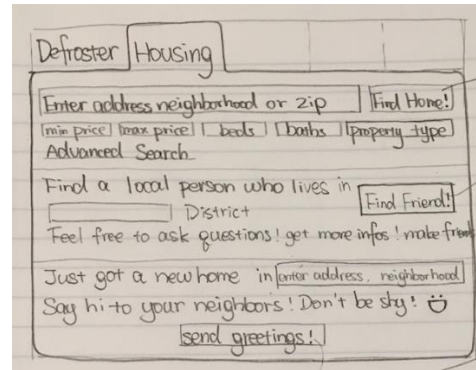 Defroster Housing
Enter address neighborhood or zip Find Home!
min price max price beds baths property type
Advanced Search
Find a local person who lives in Find Friend!
District
Feel free to ask questions! get more infos! make friend
Just got a new home in enter address, neighborhood
Say hi to your neighbors! Don't be shy!
send greetings!